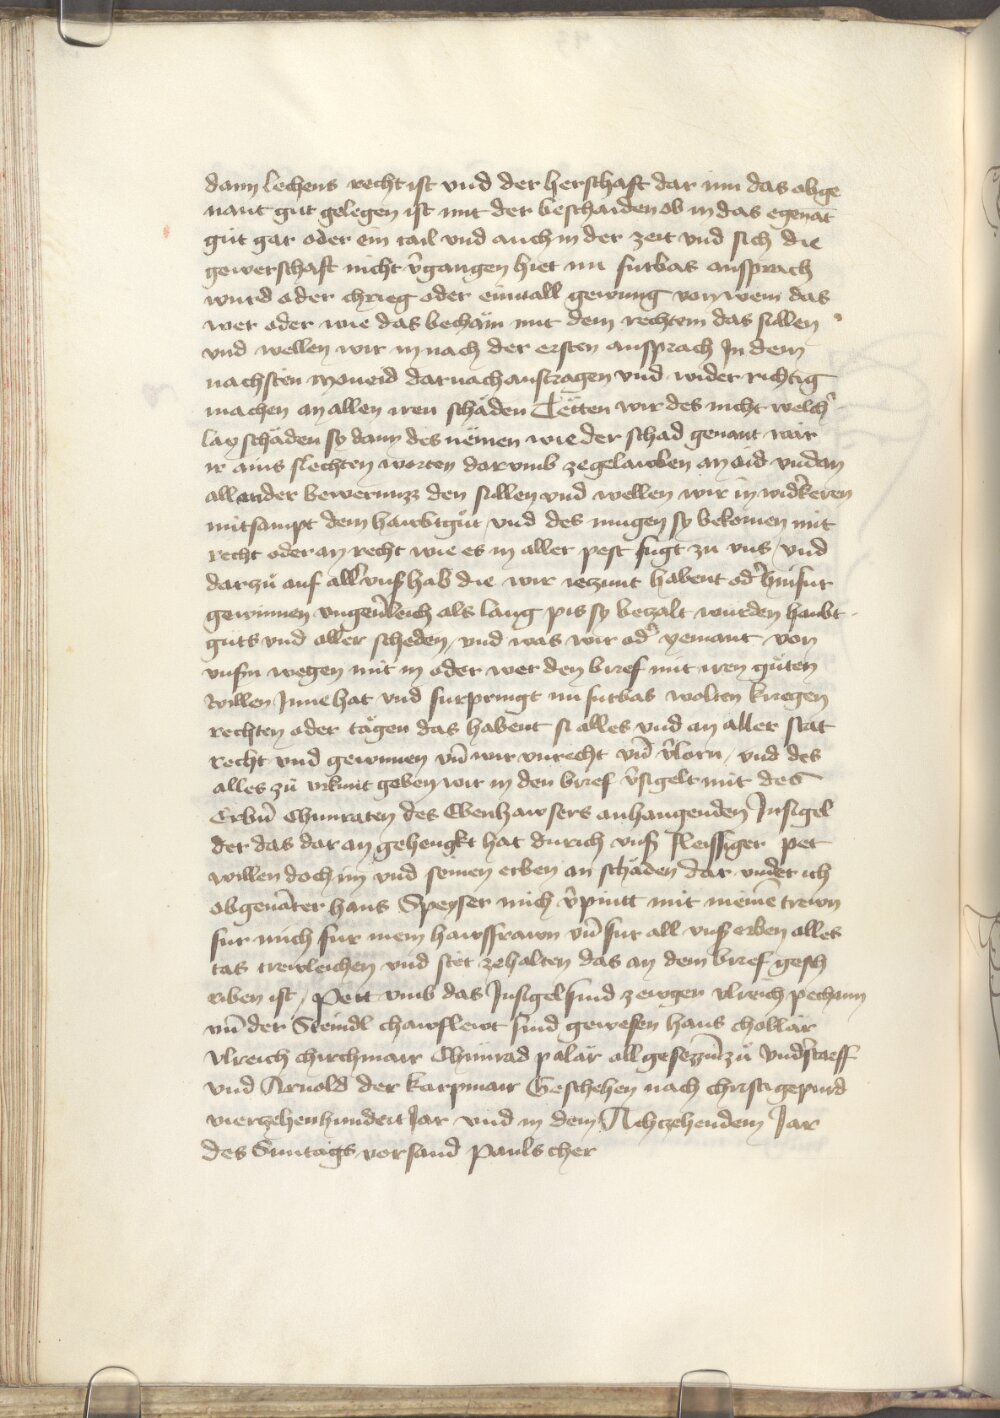 dann lechens recht ist vnd der herschaft dar inn das obge
nant gut gelegen ist mit der beschaiden ob in das egenāt
gut gar oder ein tail vnd auch in der zeit vnd sich die
gewerschaft nicht v̂gangen hiet im furbas anspprach
wurd oder chrieg oder einuall gewung von wem das
wer oder wie das bechäm mit dem rechtem das sullen
vnd wellen wir in nach der ersten anspprach In dem
nachsten moneid darnach austragen vnd wider richtig
machen an allen iren schäden Tëtten wir des nicht welch̉
lay schäden sy dann des nëmen wie der schad genant wär
ir ains slechten worten darvmb zegelawben an aid vnd an
all ander bewernuzz den sullen vnd wellen wir in wid̉keren
mitsampt dem hawbtgůt vnd des mugen sy bekomen mit
recht oder an recht wie es in aller pest fugt zu vns / vnd
darzů auf all̉ vnß hab die wir ieczunt habent od̉ hinfur
gewinnen vngeu̔leich als lang pis sy beczalt wurden haubt
guts vnd aller scheden / vnd was wir od̉ yemant von
vnſm wegen mit in oder wer den brief mit iren gůten
willen Inne hat vnd furpringt im furbas wolten kriegen
rechten oder tägen das habent si alles vnd an aller stat
recht vnd gewunnen vn̄ wir vnrecht vn̄ v̂lorn / vnd des
alles zů vrkunt geben wir in den brief v̂sigelt mit des
Erbn̄ Chunraten des Ebenhawsers anhangenden Insigel
der das dar an gehengkt hat durich vnß fleissiger pet
willen doch im vnd seinen erben an schäden dar vnder ich
obgenāter hans Speyser mich v̂pintt mit meinē trewn
fur mich fur mein hawsfrawn vn̄ fur all vnß erben alles
tas trewleichen vnd stët zehalten das an dem brief gesch
riben ist / Pett vmb das Insigel sind zewgen vlreich pechann
vn̄ der Steindl chawflewt sind gewesen hans chollär
Vlreich chirchmair Chunrad palär all gesezzn̄ zů Vnd̉staeff
vnd Arnold der karpmair Geschehen nach christi gepurd
vierzehenhundert Jar vnd in dem Achczehendem Jar
des Suntags vor sand Pauls cher